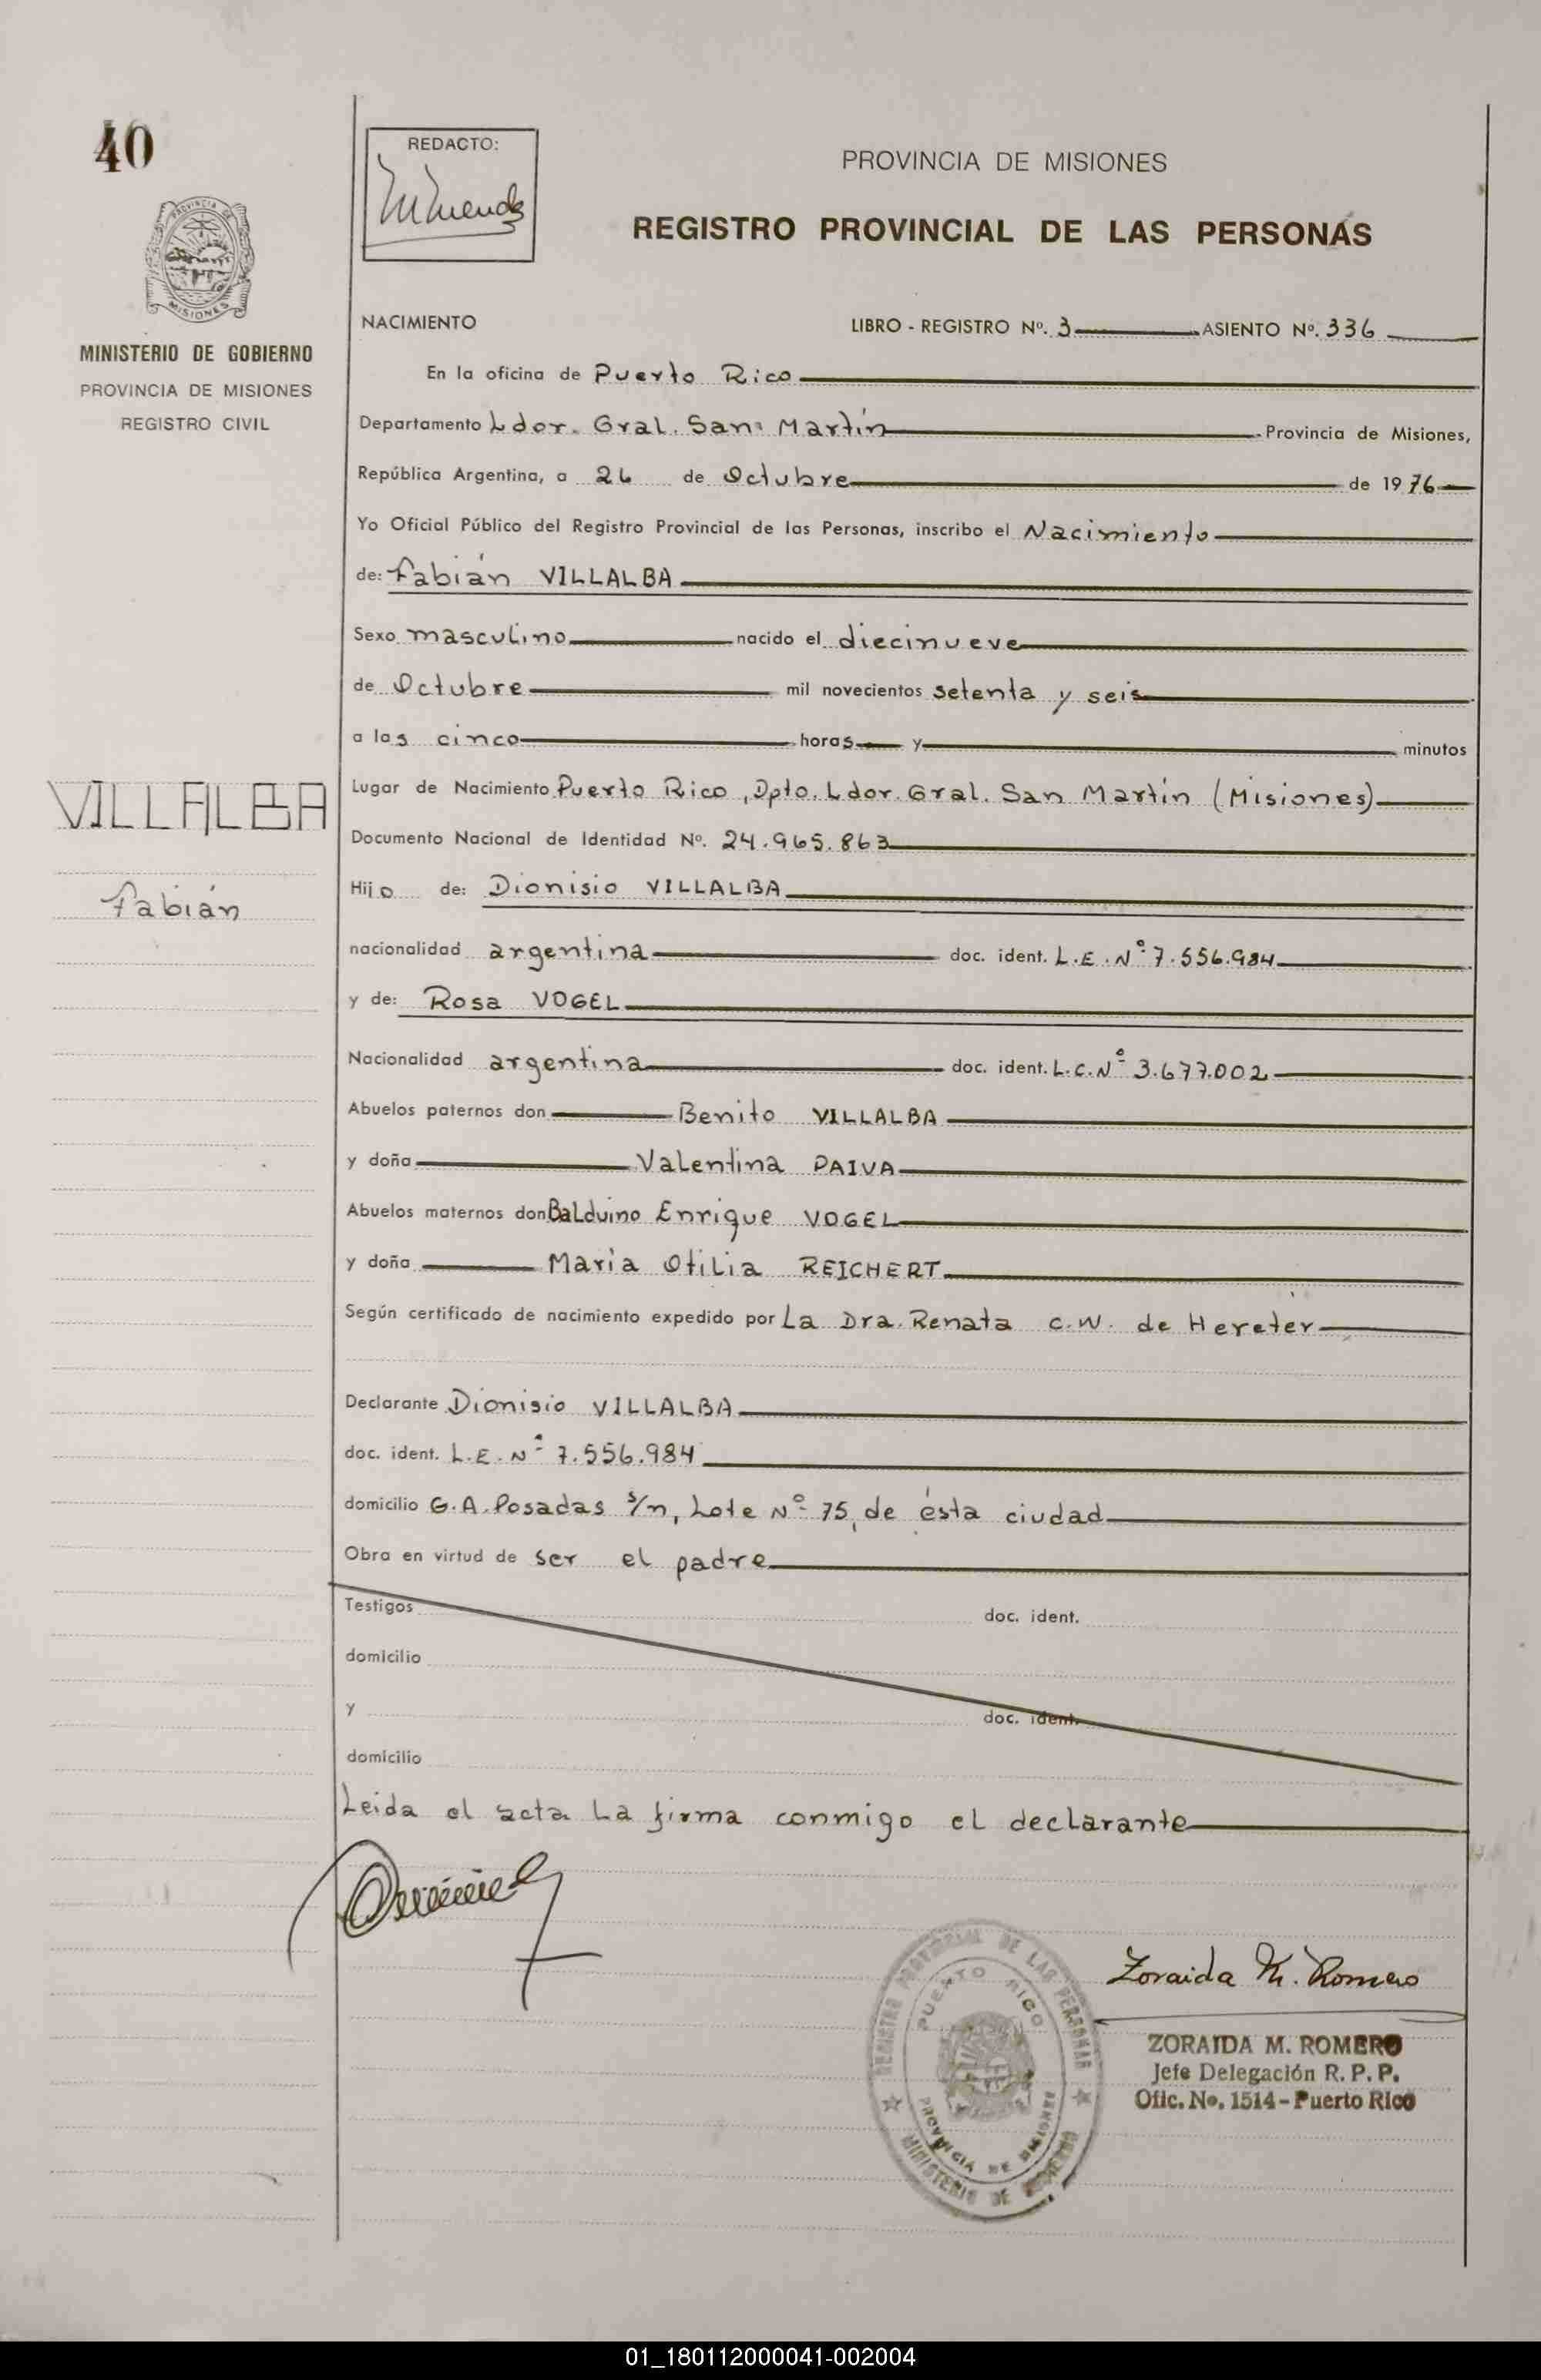 40
REDACTO:
PROVINCIA DE MISIONES
REGISTRO PROVINCIAL DE LAS PERSONAS
PROVINCIA DE
MISIONES
MINISTERIO DE GOBIERNO
PROVINCIA DE MISIONES
REGISTRO CIVIL
NACIMIENTO LIBRO - REGISTRO Nº. 3 ASIENTO Nº. 336
En la oficina de Puerto Rico
Departamento Ldor. Gral. San Martín Provincia de Misiones,
República Argentina, a 26 de Octubre de 1976
Yo Oficial Público del Registro Provincial de las Personas, inscribo el Nacimiento
de: Fabián VILLALBA
Sexo masculino nacido el diecinueve
de Octubre mil novecientos setenta y seis
a las cinco horas y minutos
Lugar de Nacimiento Puerto Rico, Dpto. Ldor. Gral. San Martín (Misiones)
Documento Nacional de Identidad Nº. 24.965.863
Hijo de: Dionisio VILLALBA
nacionalidad argentina doc. ident. L.E. Nº 7.556.984
y de: Rosa VOGEL
Nacionalidad argentina doc. ident. L.C. Nº 3.677.002
Abuelos paternos don Benito VILLALBA
y doña Valentina PAIVA
Abuelos maternos don Balduino Enrique VOGEL
y doña María Otilia REICHERT
Según certificado de nacimiento expedido por La Dra. Renata C.W. de Hereter
Declarante Dionisio VILLALBA
doc. ident. L.E. Nº 7.556.984
domicilio G.A. Posadas s/n, Lote Nº 75, de ésta ciudad
Obra en virtud de ser el padre
Testigos doc. ident.
domicilio
y doc. ident.
domicilio
Leida el acta La firma conmigo el declarante
VILLALBA
Fabián
REGISTRO PROVINCIAL DE LAS PERSONAS
PUERTO RICO
PROVINCIA DE MISIONES
MINISTERIO DE GOBIERNO
Zoraida M. Romero
ZORAIDA M. ROMERO
Jefe Delegación R. P. P.
Ofic. No. 1514 - Puerto Rico
01_180112000041-002004